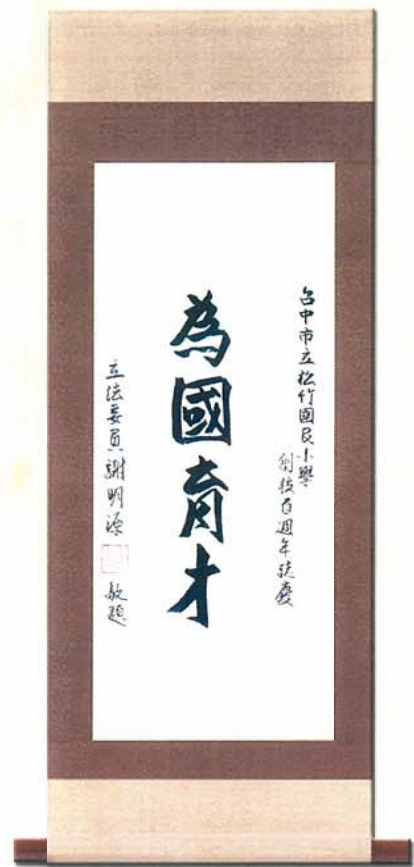 台中市立松竹國民小學
創校百週年誌慶
為國育才
立法委員謝明源 敬題